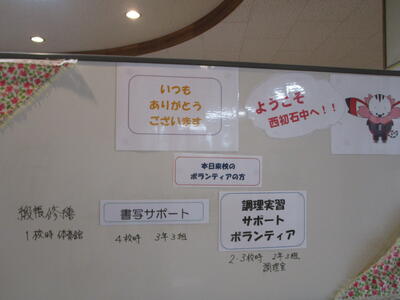 いつも
ありがとう
ございます
ようこそ
西初石中へ！！
本日来校の
ボランティアの方
暗幕修繕
1校時 体育館
書写サポート
4校時 3年3組
調理実習
サポート
ボランティア
2・3校時 2年3組
調理室